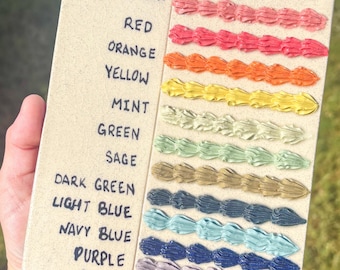 RED
ORANGE
YELLOW
MINT
GREEN
SAGE
DARK GREEN
LIGHT BLUE
NAVY BLUE
PURPLE